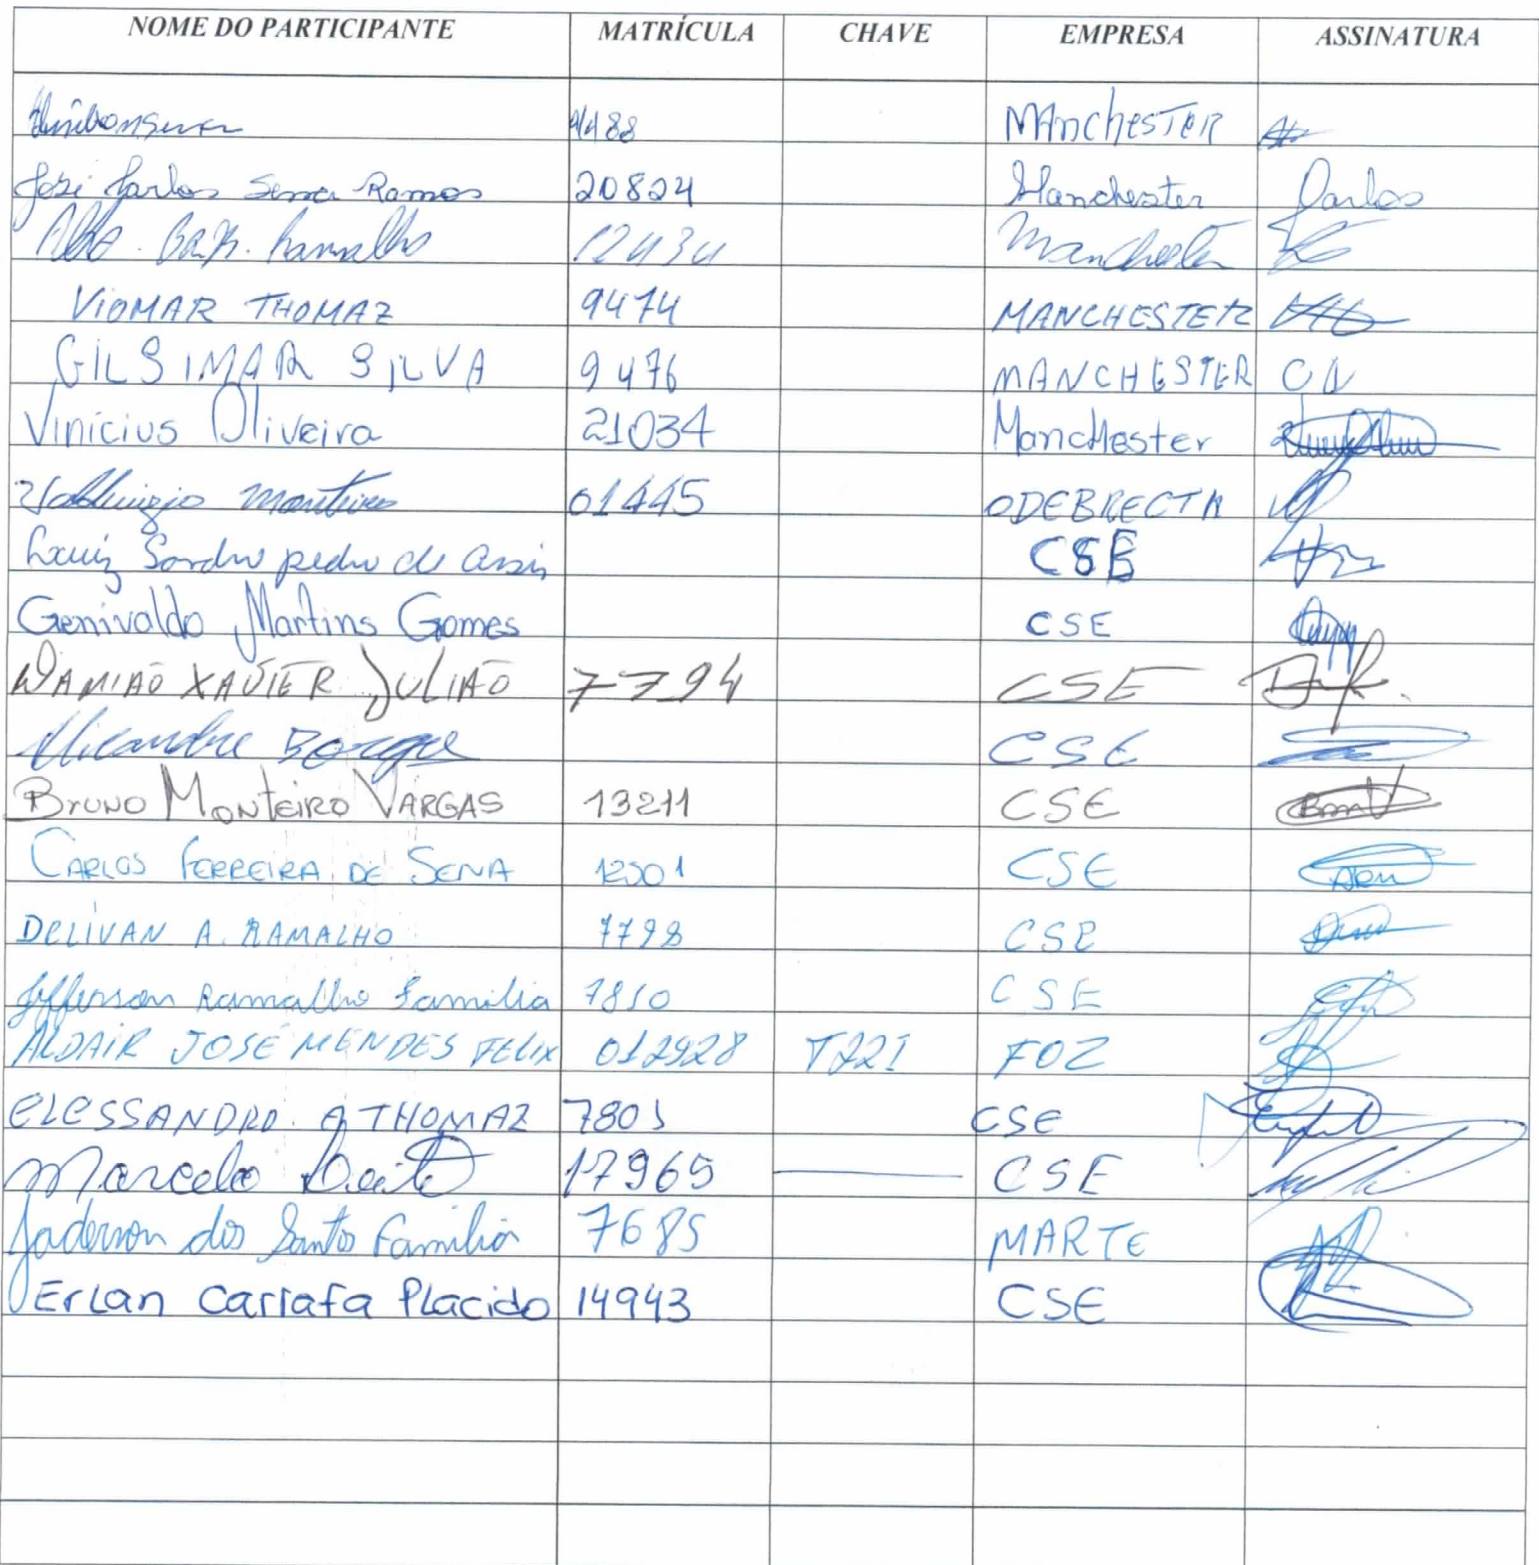 NOME DO PARTICIPANTE MATRÍCULA CHAVE EMPRESA ASSINATURA
MAnchesTER
José Carlos Serra Ramos 20824 Manchester Carlos
Ramalho 12434 Manchester
VIOMAR THOMAZ 9474 MANCHESTER
GILSIMAR SILVA 9476 MANCHESTER
Vinicius Oliveira 21034 Manchester
01445 ODEBRECTH
Luiz Sandro pedro de assis CSE
Genivaldo Martins Gomes CSE
DAMIÃO XAVIER JULIÃO 7794 CSE
Borges CSE
BRUNO MONTEIRO VARGAS 13211 CSE
CARLOS FERREIRA DE SENA 12501 CSE
DELIVAN A. RAMALHO 7798 CSE
Jefferson Ramalho Familia 7810 CSE
ALDAIR JOSÉ MENDES FELIX 012928 T22I FOZ
ELESSANDRO A THOMAZ 7803 CSE
Marcelo Leite 17965 CSE
Jaderson dos Santos Familia 7685 MARTE
Erlan Carrafa Placido 14943 CSE